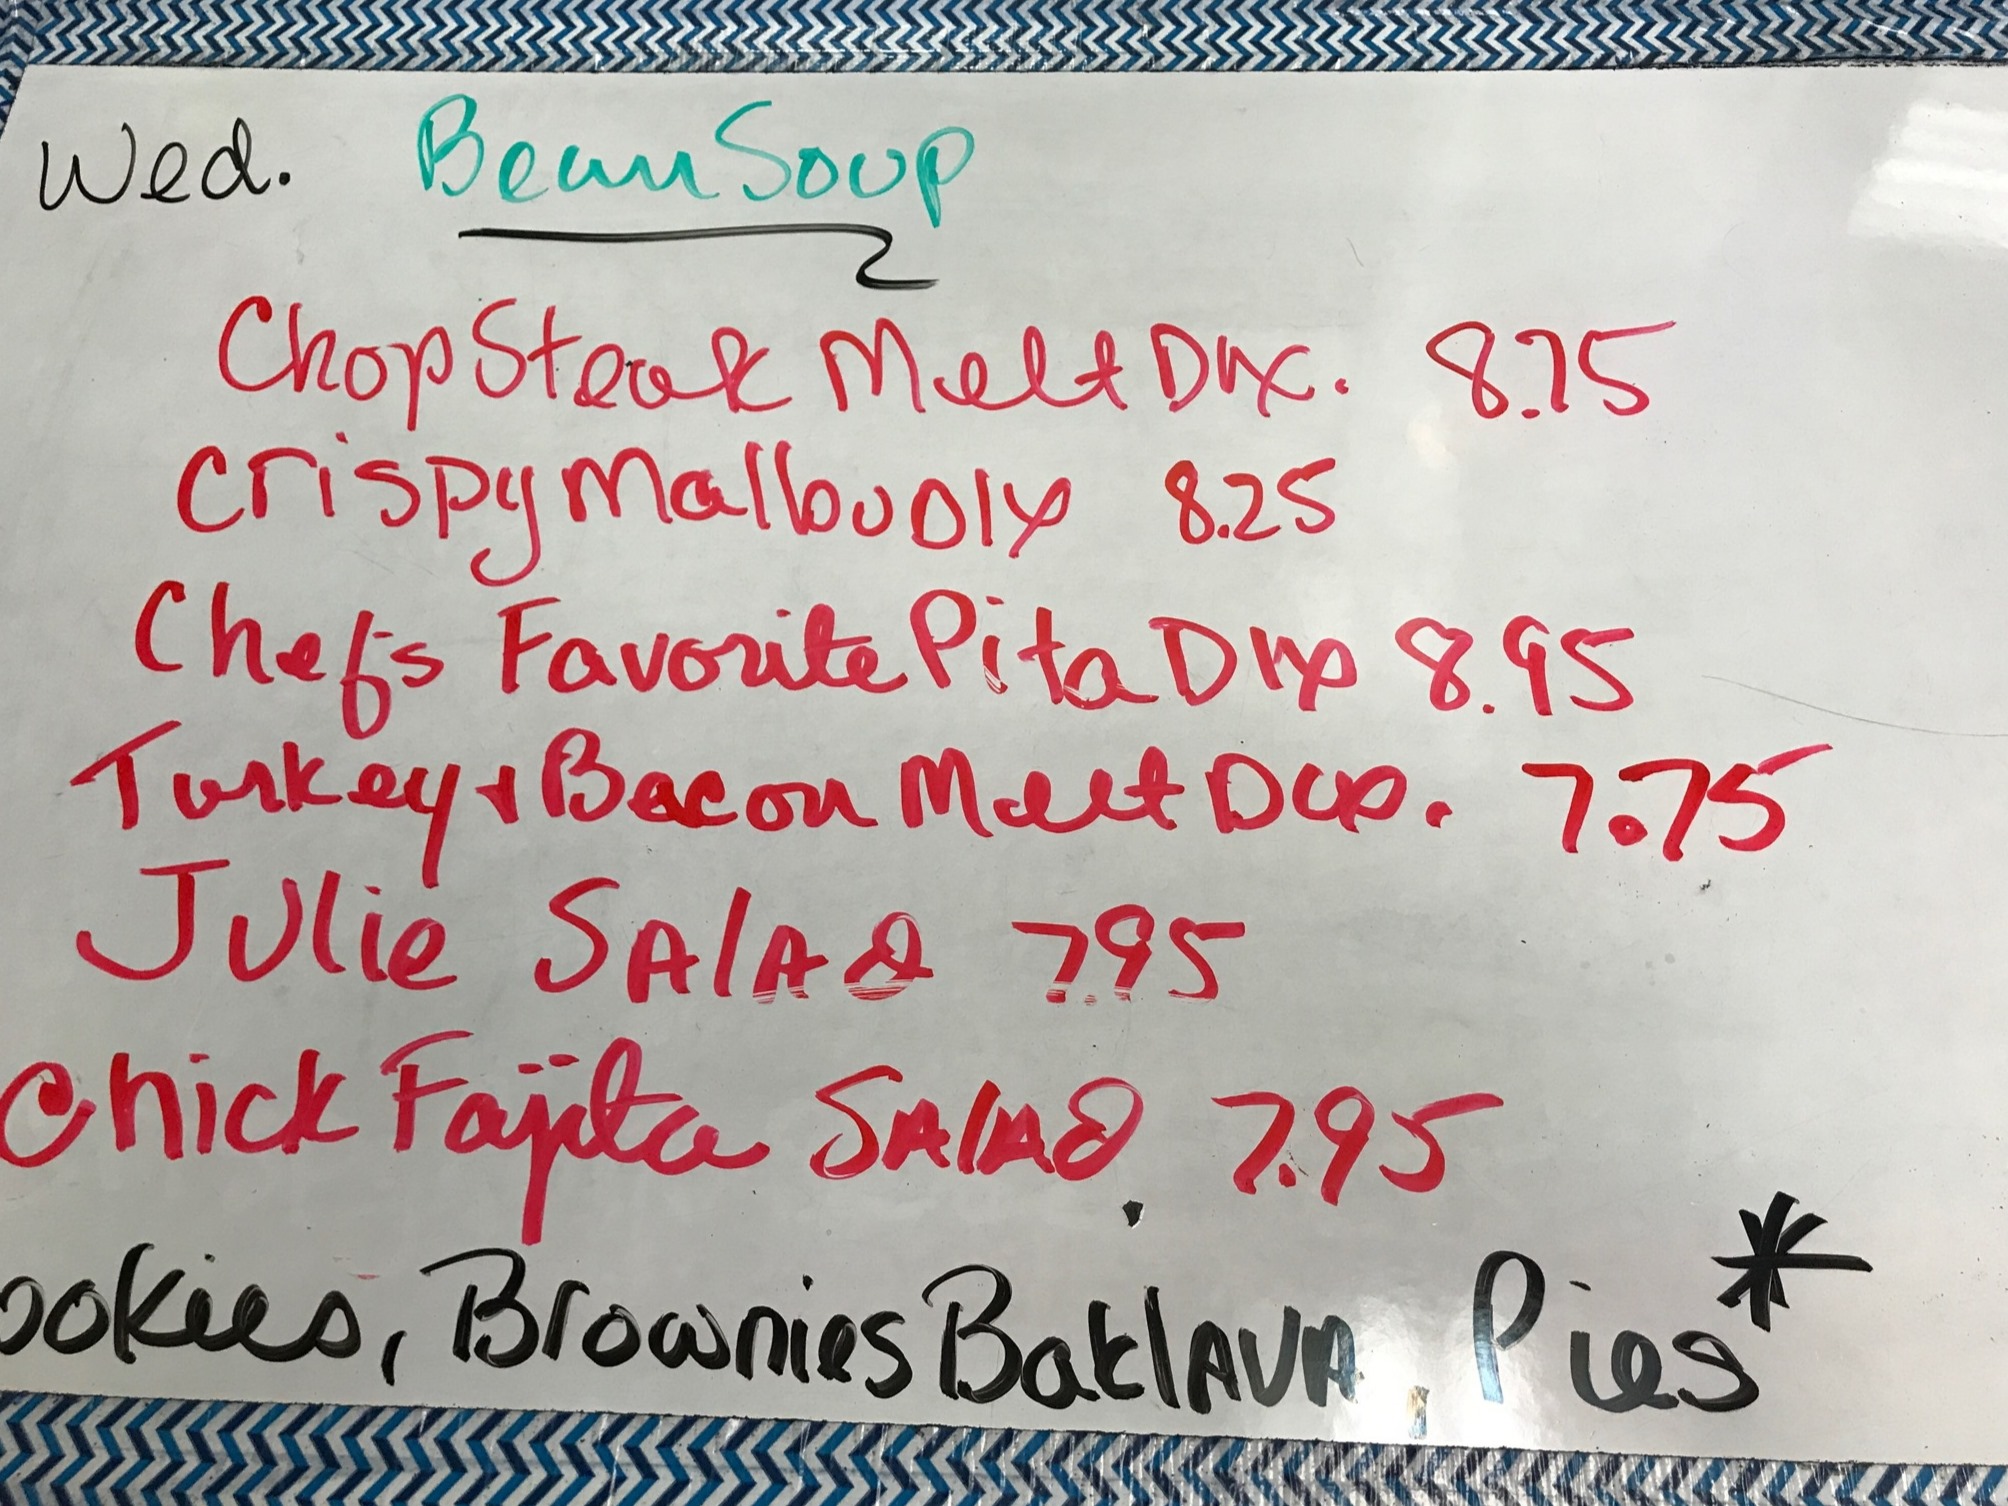 Wed. Bean Soup
Chop Steak Melt Dlx. 8.75
Crispy Malibu Dlx 8.25
Chef's Favorite Pita Dlx 8.95
Turkey + Bacon Melt Dlx. 7.75
Julie SAlAd 7.95
Chick Fajita SAlAd 7.95
ookies, Brownies BaklAVA, Pies*